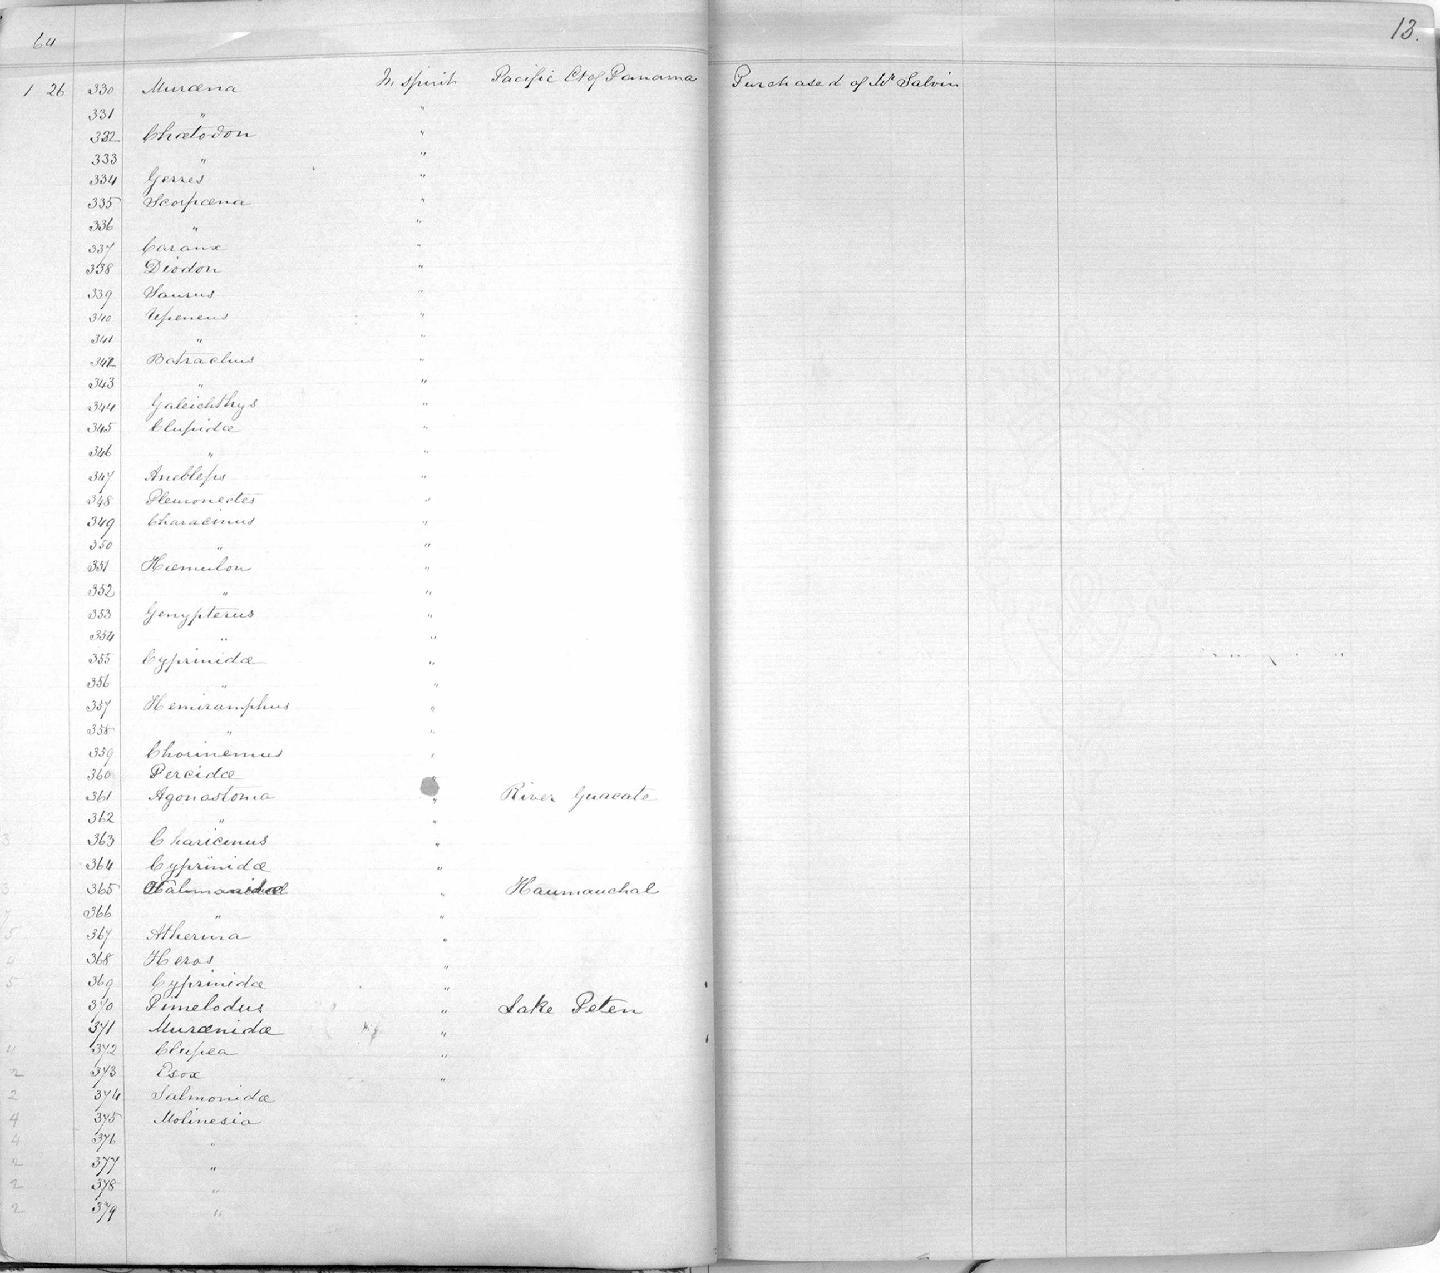 64
13.
1 26 330 Muræna In spirit Pacific Ct of Panama Purchased of Mr Salvin
331 " "
332 Chætodon "
333 " "
334 Gerres "
335 Scorpæna "
336 " "
337 Caranx "
338 Diodon "
339 Saurus "
340 Upeneus "
341 " "
342 Batrachus "
343 " "
344 Galeichthys "
345 Clupidæ "
346 " "
347 Anableps "
348 Pleuronectes "
349 Characinus "
350 " "
351 Hæmulon "
352 " "
353 Genypterus "
354 " "
355 Cyprinidæ "
356 " "
357 Hemiramphus "
358 " "
359 Chorinemus "
360 Percidæ "
361 Agonastoma " River Guacate
362 " "
3 363 Charicinus "
364 Cyprinidæ "
3 365 " Haumauchal
7 366 " "
5 367 Atherina "
4 368 Heros "
5 369 Cyprinidæ "
370 Pimelodus " Lake Peten
371 Murænidæ "
4 372 Clupea "
2 373 Esox "
2 374 Salmonidæ
4 375 Molinesia
4 376 "
2 377 "
2 378 "
2 379 "